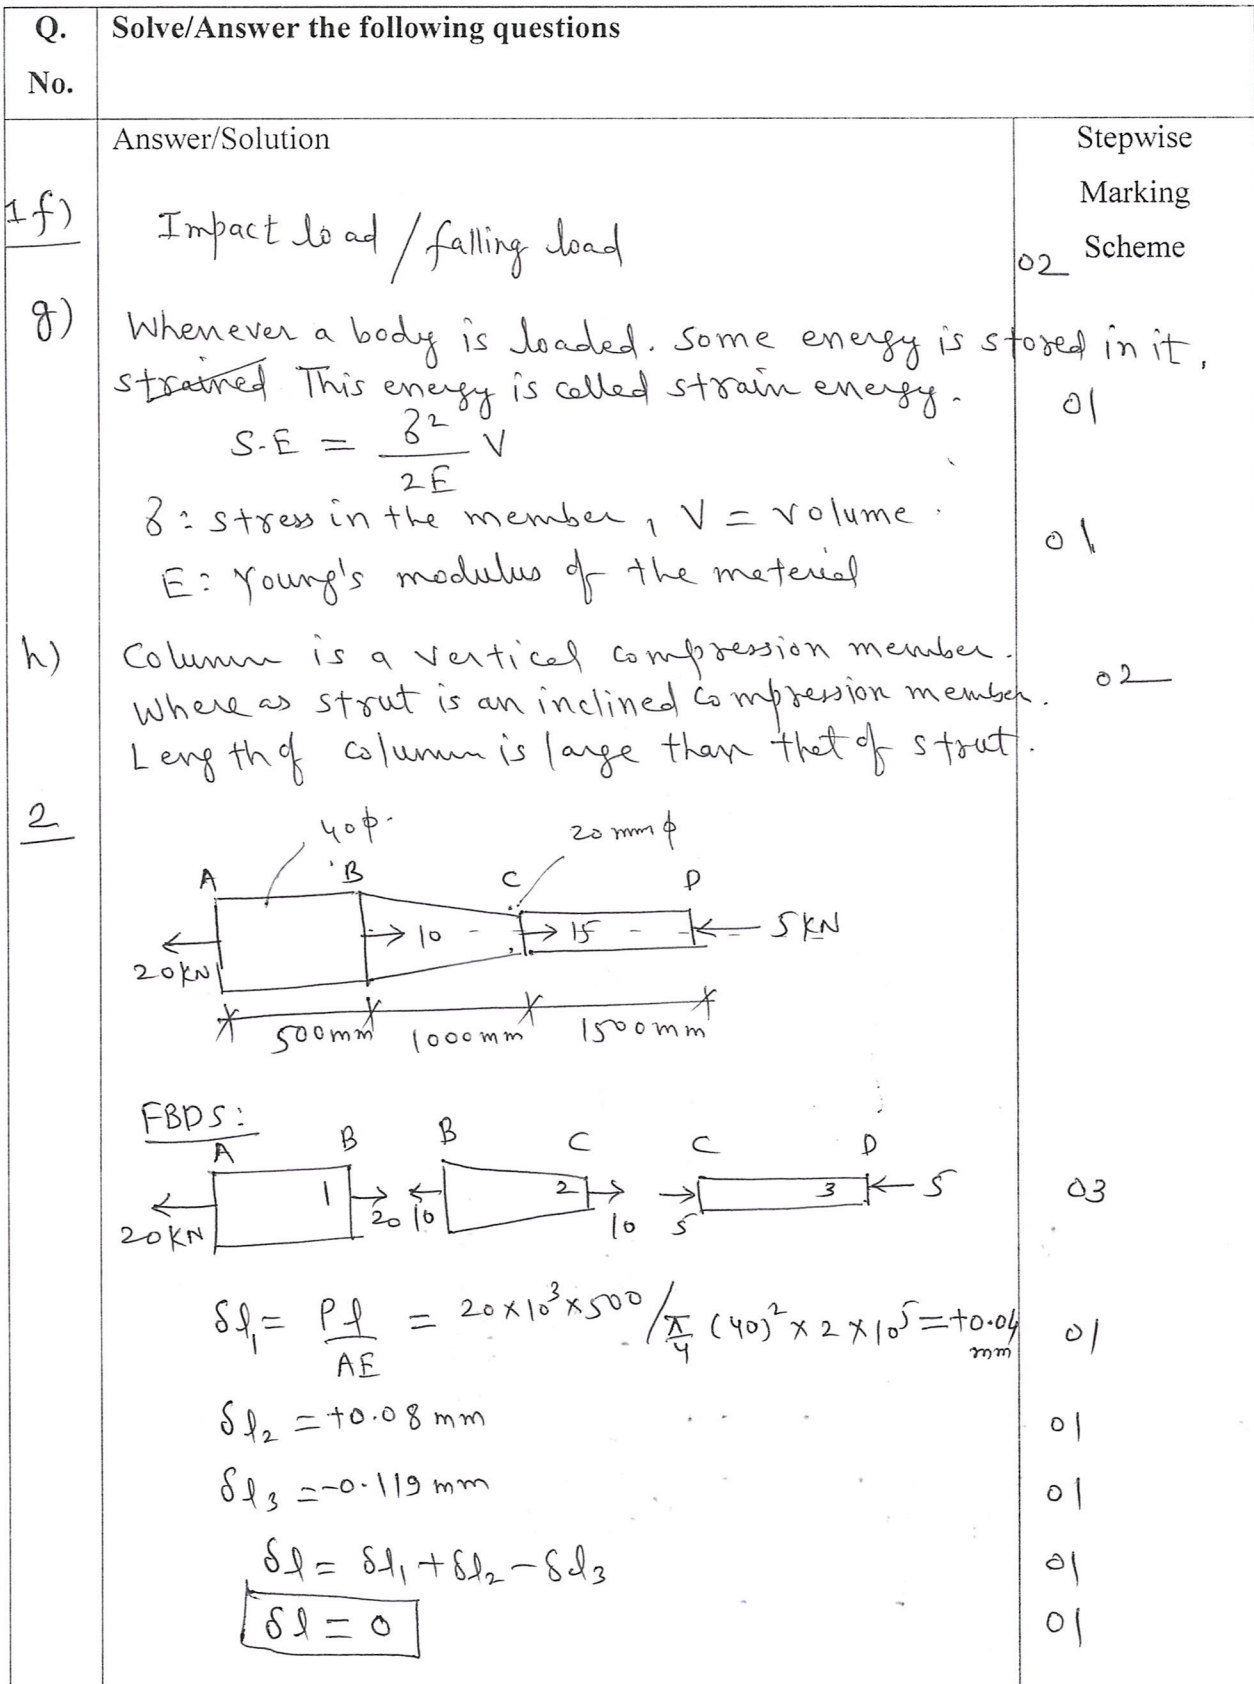 Q. No.
Solve/Answer the following questions
Answer/Solution
Stepwise Marking Scheme
1 f)
Impact load / falling load
02
g)
Whenever a body is loaded. Some energy is stored in it,
strained This energy is called strain energy.
01
S.E = σ² / 2E V
σ : stress in the member, V = volume.
01
E : Young's modulus of the material
h)
Column is a vertical compression member.
02
Where as strut is an inclined compression member.
Length of column is large than that of strut.
2
40φ.
20 mm φ
A B C D
20 KN
→ 10
→ 15
← 5 KN
500mm 1000mm 1500mm
FBDS:
A B B C C D
1 2 3
20KN 20 10 10 5 5
03
δl₁ = Pl / AE = 20 × 10³ × 500 / π/4 (40)² × 2 × 10⁵ = +0.04 mm
01
δl₂ = +0.08 mm
01
δl₃ = -0.119 mm
01
δl = δl₁ + δl₂ - δl₃
01
δl = 0
01